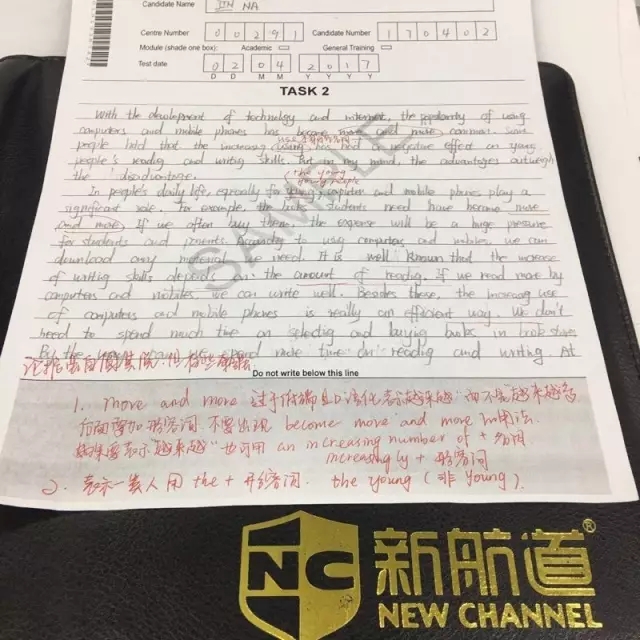 Candidate Name NA
Centre Number 0 0 2 9 1 Candidate Number 1 7 0 4 0 2
Module (shade one box): Academic General Training
Test date 0 2 0 4 2 0 1 7
D D M M Y Y Y Y
TASK 2
With the development of technology and internet, the popularity of using
computers and mobile phones has become more and more common. Some
people hold that the increasing using has negative effect on young
people's reading and writing skills. But in my mind, the advantages outweigh
the disadvantage.
the young
In people's daily life, especially for young computers and mobile phones play a
significant role. For example, the books students need have become more
and more. If we often buy them, the expense will be a huge pressure
for students and parents. According to using computers and mobiles, we can
download any material we need. It is well known that the increase
of writing skills depends on the amount of reading. If we read more by
computers and mobiles we can write well. Besides these, the increasing use
of computers and mobile phones is really an efficient way. We don't
need to spend much time on selecting and buying books in book stores
By the more time on reading and writing. At
Do not write below this line
1. move and more 过于 表示越来越 而不是越来越多
后面要加形容词 不要出现 become move and more 的用法
表示"越来越"也可用 an increasing number of + 名词
increasingly + 形容词
2. 表示一类人用 the + 形容词. the young (非 young).
SAMPLE
NC 新航道®
NEW CHANNEL